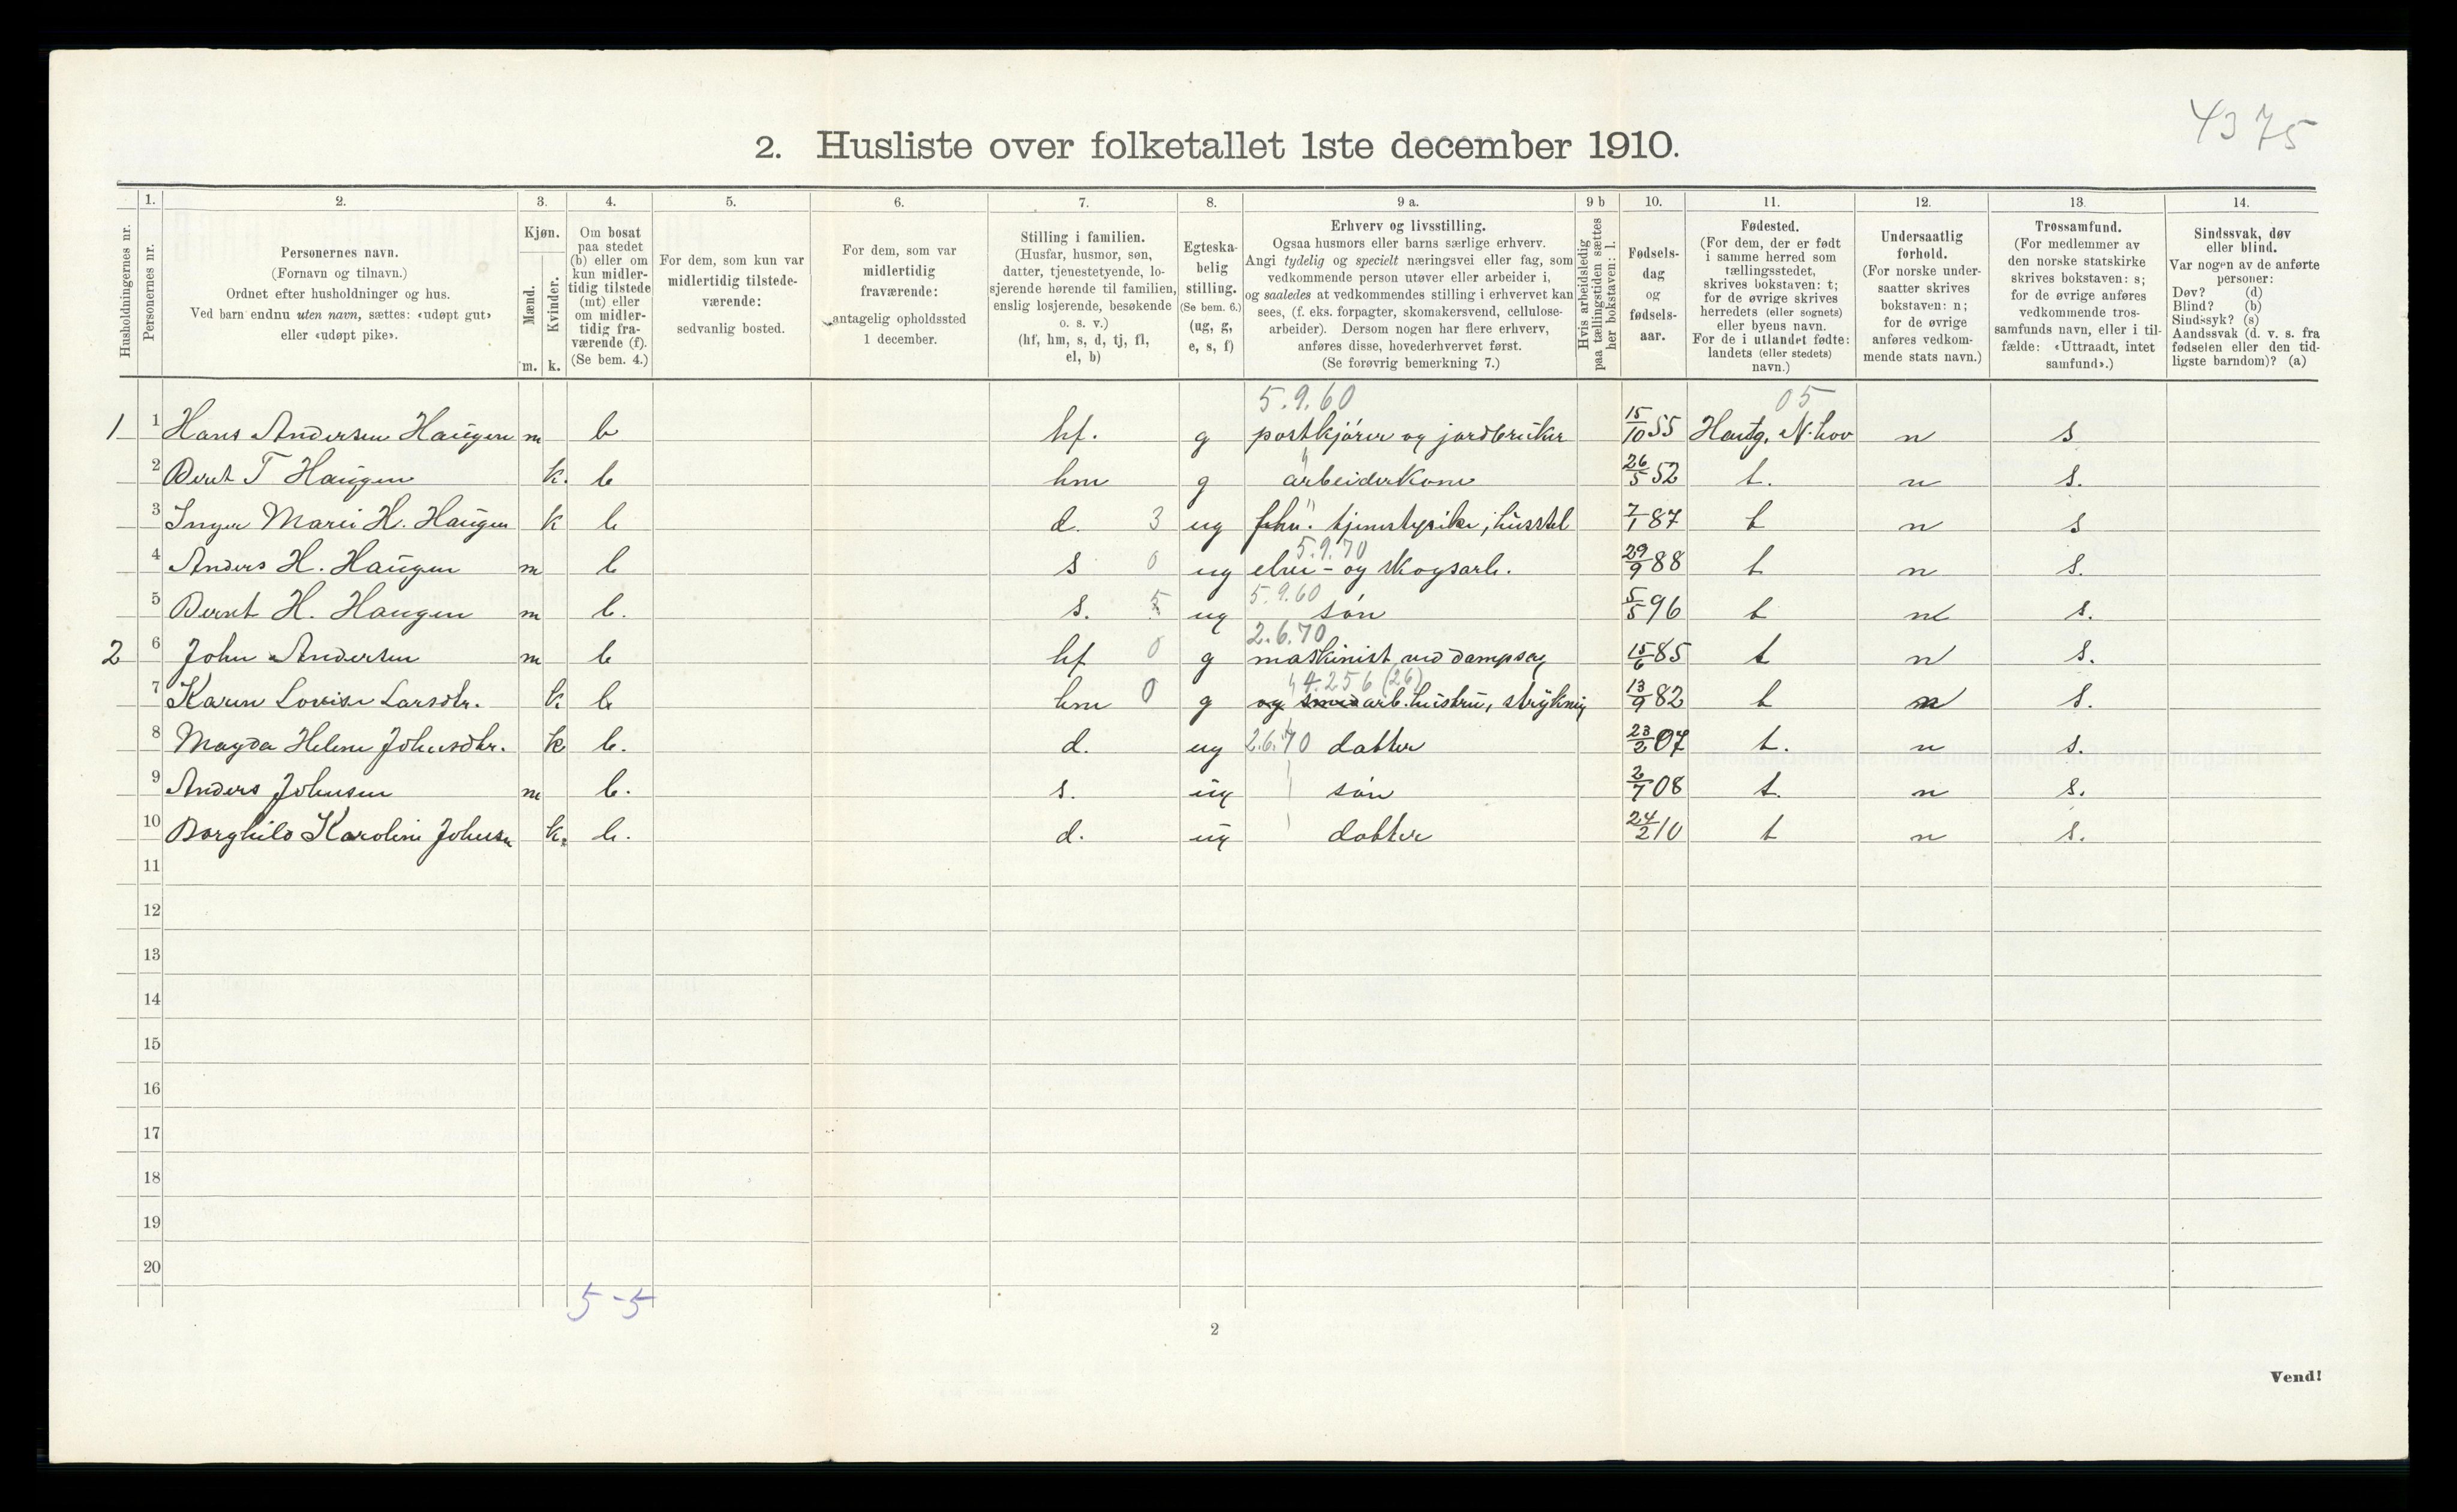 4375
2. Husliste over folketallet 1ste december 1910.
1. 2. 3. 4. 5. 6. 7. 8. 9 a. 9 b 10. 11. 12. 13. 14.
Husholdningernes nr.
Personernes nr.
Personernes navn.
(Fornavn og tilnavn.)
Ordnet efter husholdninger og hus.
Ved barn endnu uten navn, sættes: «udøpt gut»
eller «udøpt pike».
Kjøn.
Mænd.
Kvinder.
m. k.
Om bosat
paa stedet
(b) eller om
kun midler-
tidig tilstede
(mt) eller
om midler-
tidig fra-
værende (f).
(Se bem. 4.)
For dem, som kun var
midlertidig tilstede-
værende:
sedvanlig bosted.
For dem, som var
midlertidig
fraværende:
antagelig opholdssted
1 december.
Stilling i familien.
(Husfar, husmor, søn,
datter, tjenestetyende, lo-
sjerende hørende til familien,
enslig losjerende, besøkende
o. s. v.)
(hf, hm, s, d, tj, fl,
el, b)
Egteska-
belig
stilling.
(Se bem. 6.)
(ug, g,
e, s, f)
Erhverv og livsstilling.
Ogsaa husmors eller barns særlige erhverv.
Angi tydelig og specielt næringsvei eller fag, som
vedkommende person utøver eller arbeider i,
og saaledes at vedkommendes stilling i erhvervet kan
sees, (f. eks. forpagter, skomakersvend, cellulose-
arbeider). Dersom nogen har flere erhverv,
anføres disse, hovederhvervet først.
(Se forøvrig bemerkning 7.)
Hvis arbeidsledig
paa tællingstiden sættes
her bokstaven: l.
Fødsels-
dag
og
fødsels-
aar.
Fødested.
(For dem, der er født
i samme herred som
tællingsstedet,
skrives bokstaven: t;
for de øvrige skrives
herredets (eller sognets)
eller byens navn.
For de i utlandet fødte:
landets (eller stedets)
navn.)
Undersaatlig
forhold.
(For norske under-
saatter skrives
bokstaven: n;
for de øvrige
anføres vedkom-
mende stats navn.)
Trossamfund.
(For medlemmer av
den norske statskirke
skrives bokstaven: s;
for de øvrige anføres
vedkommende tros-
samfunds navn, eller i til-
fælde: «Uttraadt, intet
samfund».)
Sindssvak, døv
eller blind.
Var nogen av de anførte
personer:
Døv? (d)
Blind? (b)
Sindssyk? (s)
Aandssvak (d. v. s. fra
fødselen eller den tid-
ligste barndom)? (a)
5.9.60 05
1 1 Hans Andersen Haugen m b hf. g postkjører og jordbruker 15/10 55 N.hov n s
2 Berit T Haugen k. b hm g arbeiderkone 26/5 52 t. n s.
3 Inger Marie H. Haugen k b d. 3 ug tjenestepike, husstel 7/1 87 t n s
5.9.70
4 Anders H. Haugen m b s 0 ug elve- og skogsarb. 29/9 88 t n s.
5.9.60
5 Bernt H. Haugen m b. s. 5 ug søn 5/5 96 t n s.
2.6.70
2 6 John Andersen m b hf 0 g maskinist ved dampsag 15/6 85 t n s.
4.256 (26)
7 Karen Lovise Larsdtr. k b hm 0 g og smed arb. hustru, strykning 13/9 82 t n s.
8 Magda Helene Johnsdtr. k b. d. ug 2.6.70 datter 23/2 07 t. n s.
9 Anders Johnsen m b. s. ug søn 2/7 08 t. n s.
10 Borghild Karoline Johnsen k. b. d. ug datter 24/2 10 t n s.
11
12
13
14
15
16
17
18
19
20
5-5
2
Vend!